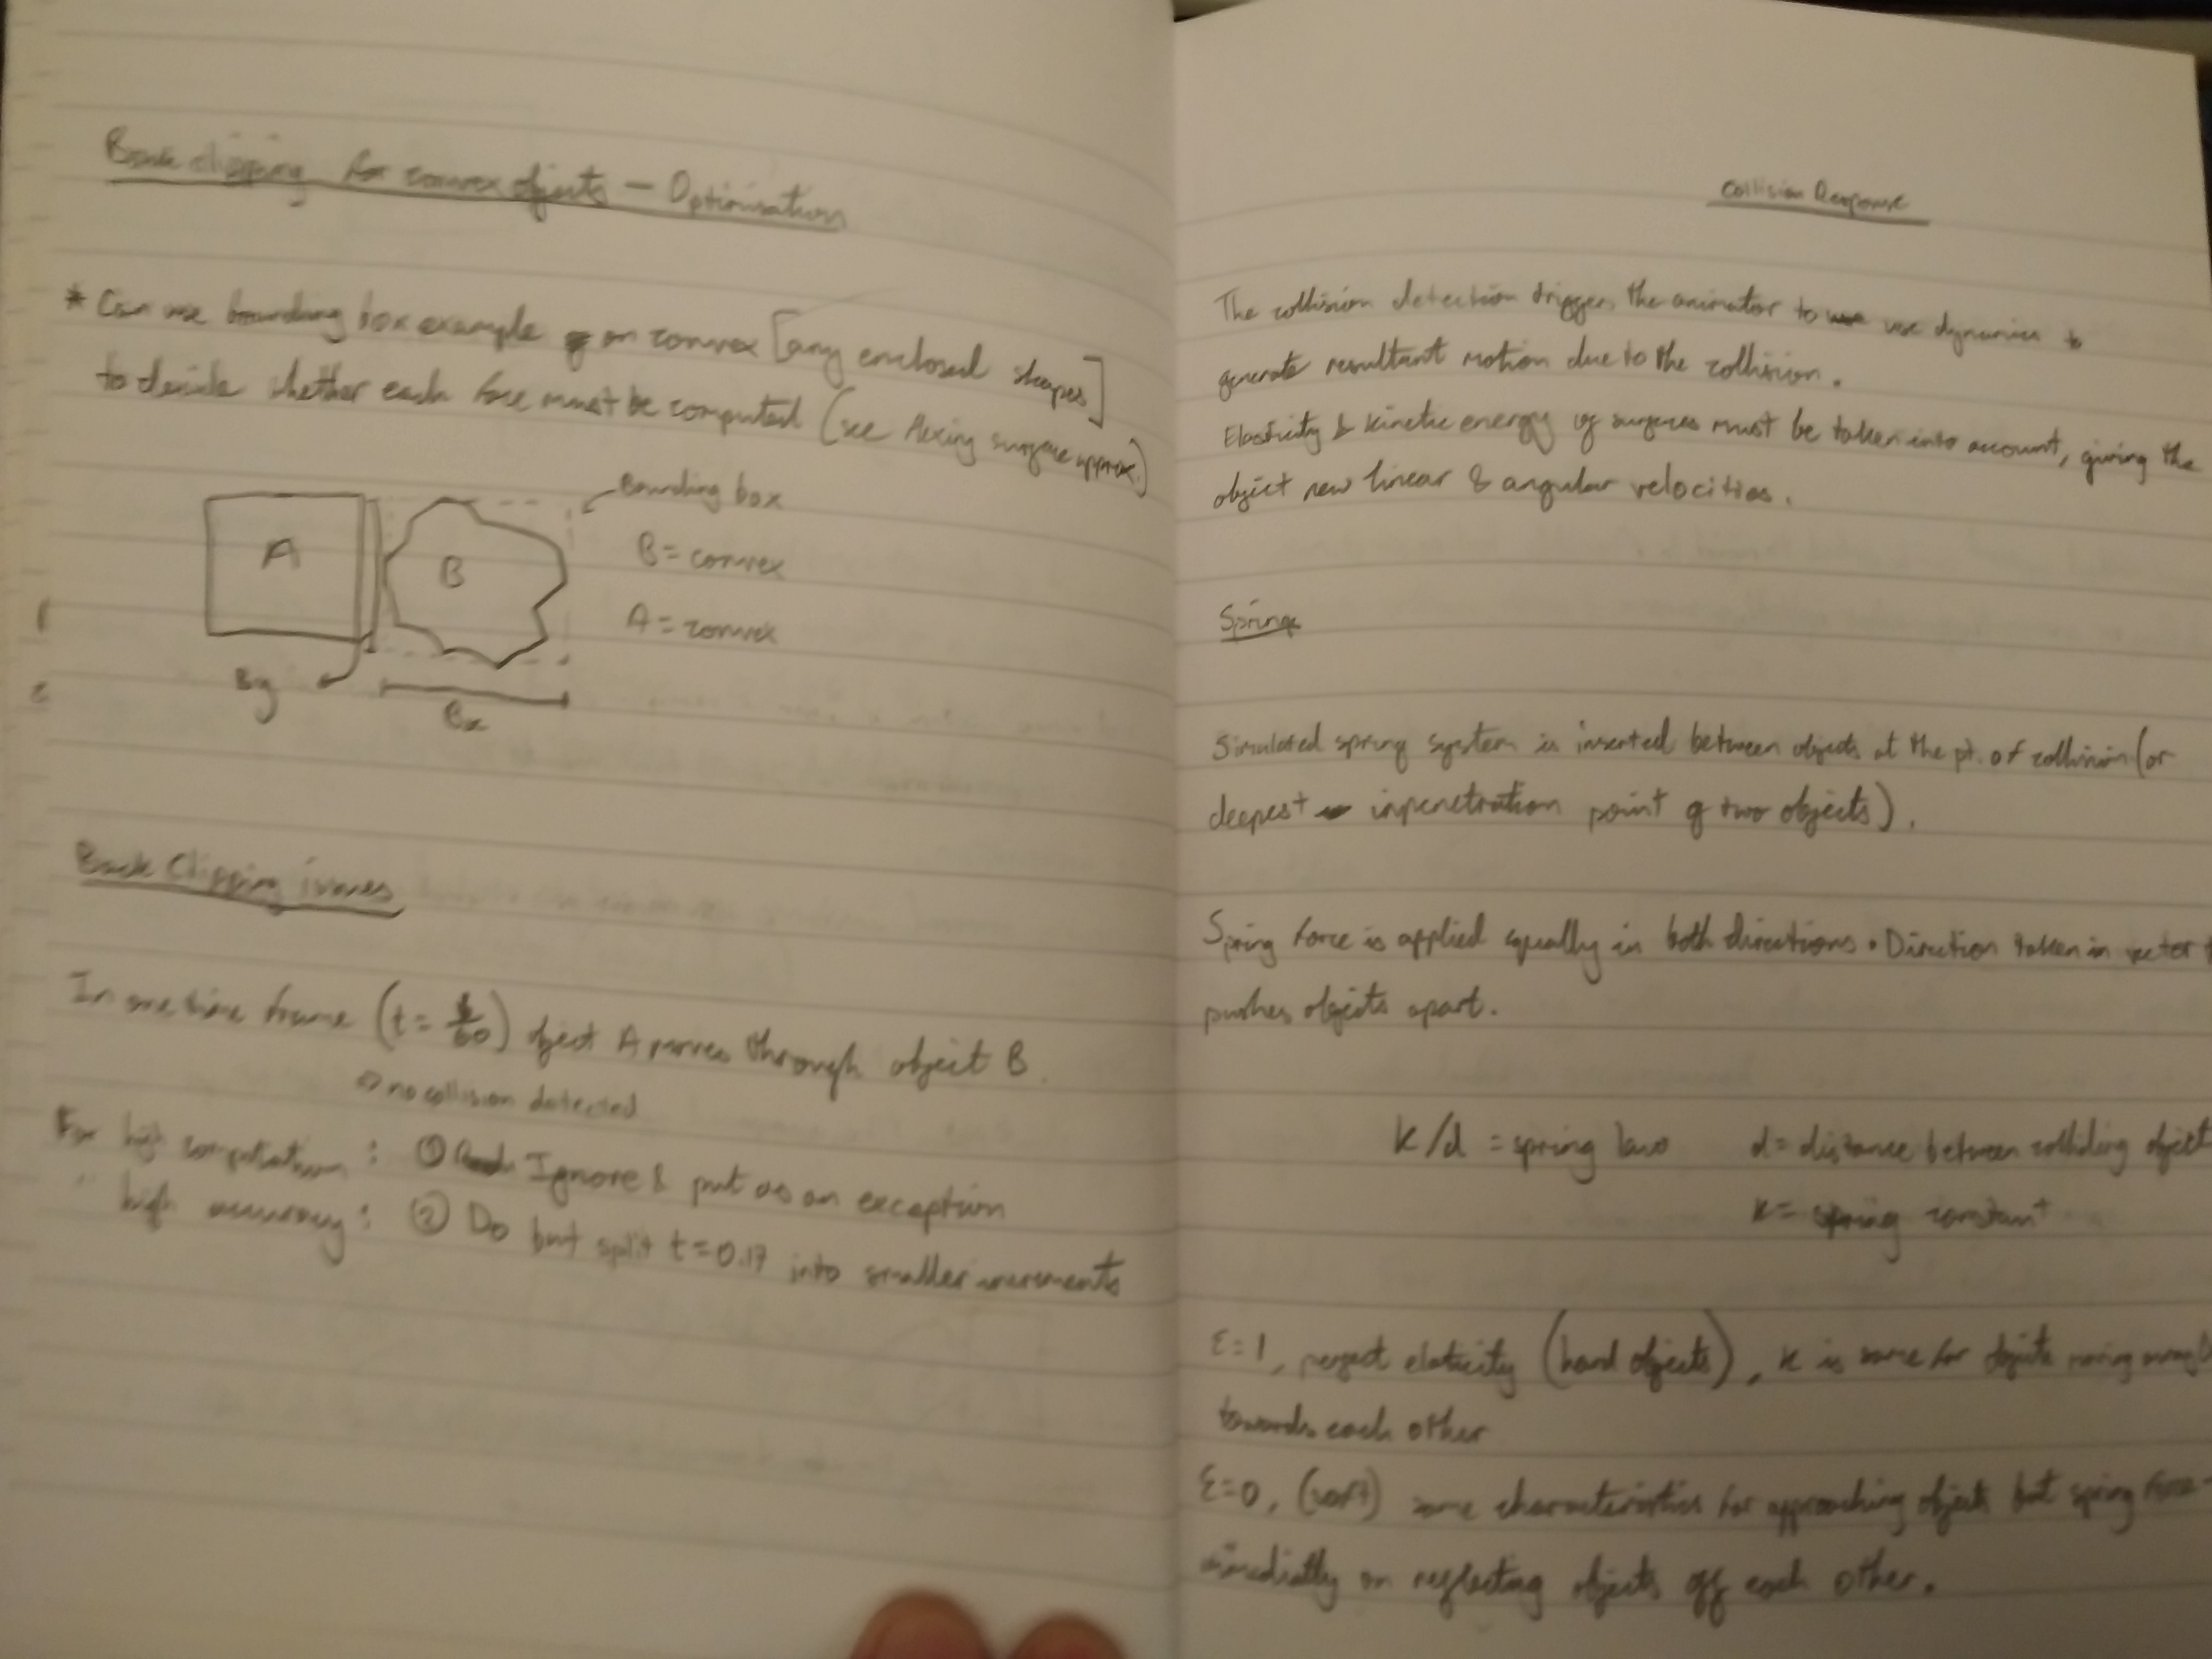 Back clipping for convex objects — Optimisation
* Can use bounding box example on convex [any enclosed shapes]
to decide whether each face must be computed (see flexing surface approx.)
Bounding box
A
B
B = convex
A = convex
By
Bx
Back Clipping issues
In one time frame (t = /60) object A passes through object B.
⇒ no collision detected
For high computation : ① Ignore & put as an exception
" high accuracy : ② Do but split t=0.17 into smaller increments
Collision Response
The collision detection triggers the animator to use dynamics to
generate resultant motion due to the collision.
Elasticity & kinetic energy of surfaces must be taken into account, giving the
object new linear & angular velocities.
Springs
Simulated spring system is inserted between objects at the pt. of collision (or
deepest inpenetration point of two objects).
Spring force is applied equally in both directions. Direction taken in vector
pushes objects apart.
k/d = spring law d = distance between colliding object
k = spring constant
ε=1, perfect elaticity (hard objects), k is same for objects moving
towards each other
ε=0, (soft) same characteristics for approaching objects but spring
immediatly on reflecting objects off each other.